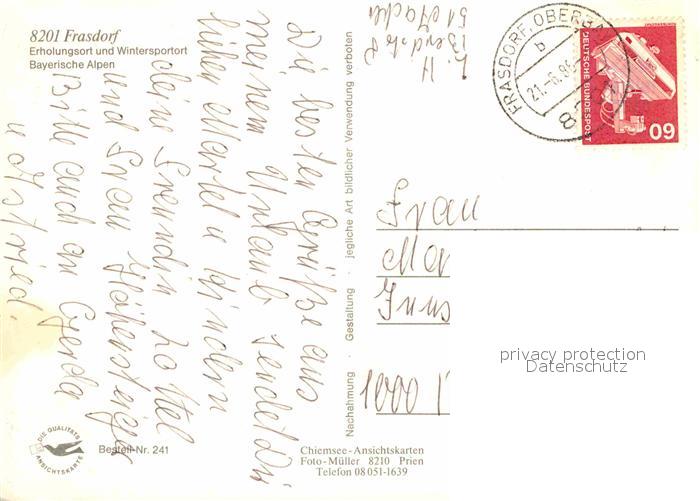 8201 Frasdorf
Erholungsort und Wintersportort
Bayerische Alpen
Die besten Grüße aus
meinem Urlaub sendet Dir
lieber Martel u Kindern
deine Freundin Lottel
und Frau
Bitte auch an Gerda
u Astried.
Nachahmung · Gestaltung · jegliche Art bildlicher Verwendung verboten
FRASDORF, OBERB
b
21.-6.
DEUTSCHE BUNDESPOST
60
Frau
Inns
1000
privacy protection
Datenschutz
DIE QUALITÄTS
ANSICHTSKARTE
Bestell-Nr. 241
Chiemsee-Ansichtskarten
Foto-Müller 8210 Prien
Telefon 08051-1639